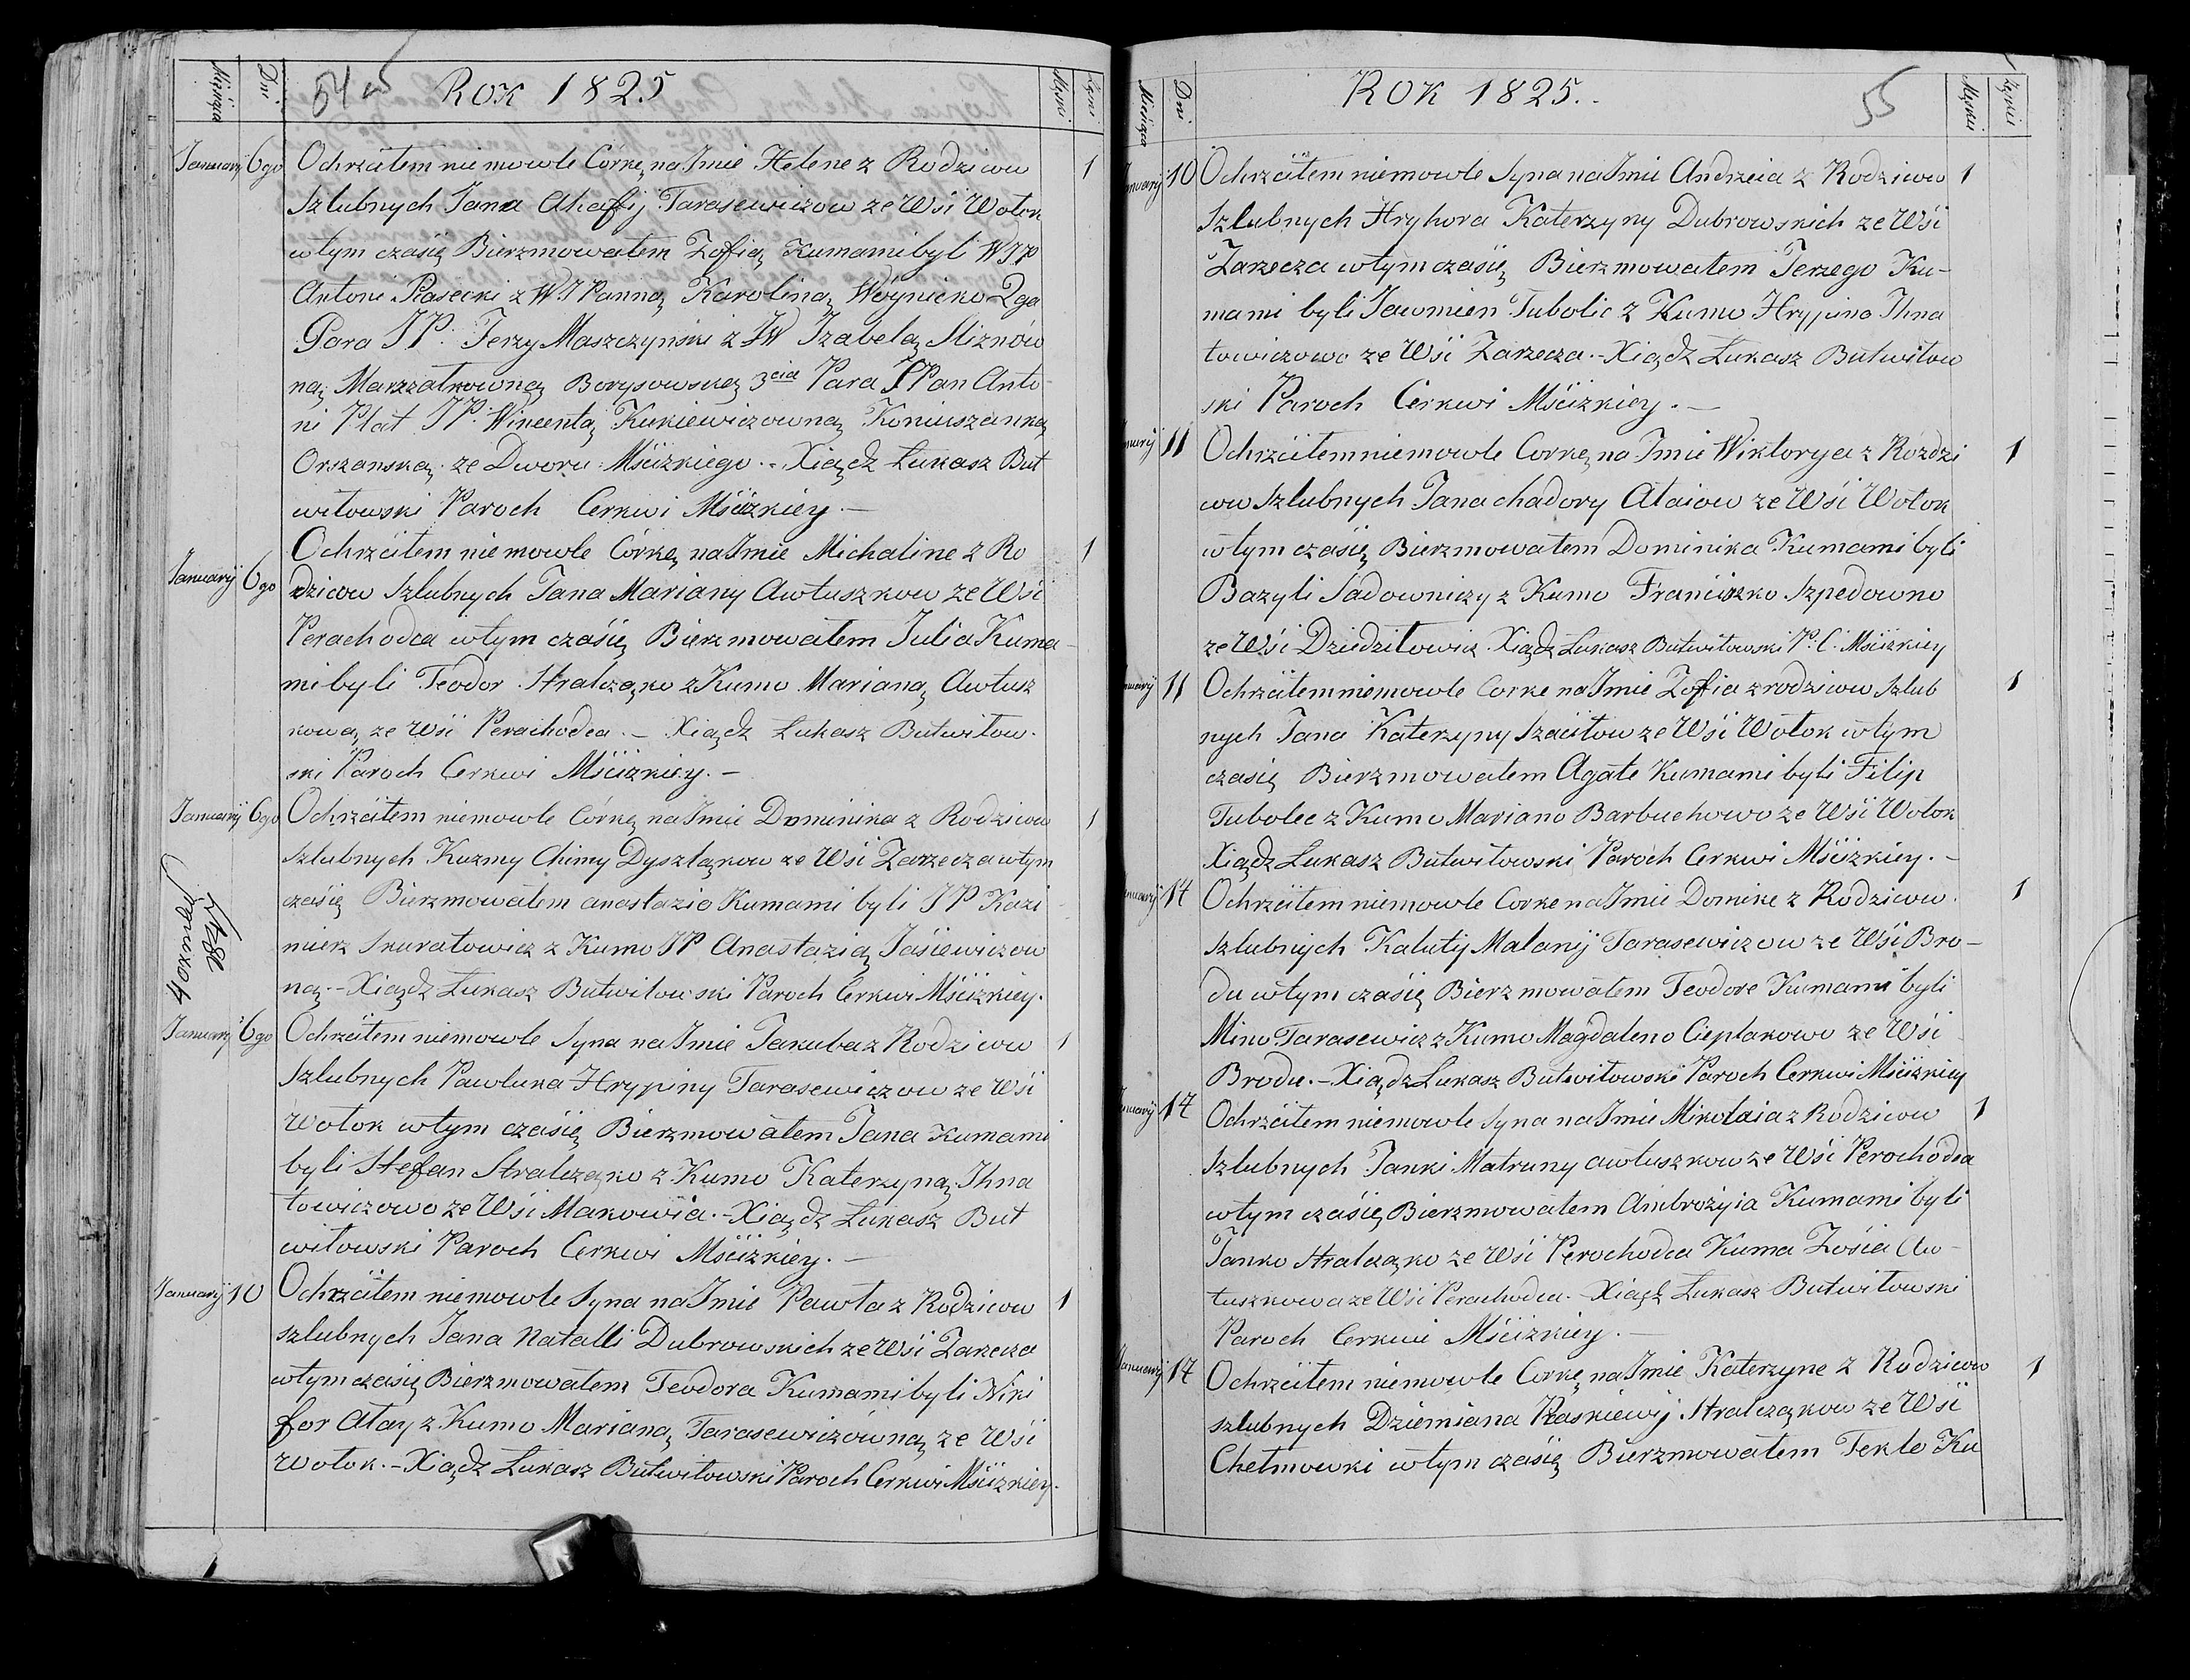 Miesiąca Dni 54 ROK 1825 Męski Żęski
Januarÿ 6go Ochrzciłem niemowle Córkę na Jmie Helene z Rodziców 1
Szlubnych Jana Ahafij Tarasewiczow ze Wśi Wołok
wtym czasię Bierzmowałem Zofią Kumami byli WJP
Antoni Piasecki z WJPanną Karoliną Woynicko 2ga
Para JP. Jerzy Maszczynski z JW Jzabelą Sliznów
ną Marzzałkowną Borysowską 3cia Para JPan Anto
ni Plat JP. Wincentą Kukiewiczowną Koniuszanką
Orszanską ze Dworu Mśćizkiego. - Xiądz Łukasz But
witowski Paroch Cerkwi Mśćizkiey. —
Januarÿ 6go Ochrzciłem niemowle Córkę na Jmie Michaline z Ro 1
dzicow Szlubnych Jana Mariany Awtuszkow ze Wśi
Perachodca wtym czaśię Bierzmowałem Julia Kuma-
mi byli Teodor Stralcząko z Kumo Marianą Awtusz
kową ze Wśi Perachodca. - Xiądz Łukasz Butwitow-
ski Paroch Cerkwi Mśćizkiey. -
Januarÿ 6go Ochrzciłem niemowle Córkę na Jmie Dominika z Rodzicow 1
Szlubnych Kuzmy Chimy Dyszląkow ze Wśi Zarzecza wtym
czaśię Bierzmowałem anastazio Kumami byli JP Kazi
mierz Skuratowicz z Kumo JP Anastazią Jaśiewiczow
ną. - Xiądz Łukasz Butwitowski Paroch Cerkwi Mśćizkiey.
Januarÿ 6go Ochrzciłem niemowle Syna na Jmie Jakuba z Rodzicow 1
Szlubnych Pawluka Hrypiny Tarasewiczow ze Wśi
Wołok wtym czaśię Bierzmowałem Jana Kumami
byli Stefan Stralcząko z Kumo Katerzyną Jhna
towiczowo ze Wśi Makowia. - Xiądz Łukasz But
witowski Paroch Cerkwi Mśćizkiey. —
Januarÿ 10 Ochrzciłem niemowle Syna na Jmie Pawła z Rodzicow 1
szlubnych Jana Natalli Dubrowskich ze Wśi Zarzecza
wtym czaśię Bierzmowałem Teodora Kumami byli Niki
for Ałay z Kumo Marianą Tarasewiczówną ze Wśi
Wołok. - Xiądz Łukasz Butwitowski Paroch Cerkwi Mśćizkiey.
Miesiąca Dni ROK 1825. 55 Męskie Żęskie
Januarÿ 10 Ochrzciłem niemowle Syna na Jmie Andrzeia z Rodzicow 1
Szlubnych Hryhora Katerzyny Dubrowskich ze Wśi
Zarzecza wtym czaśię Bierzmowałem Jerzego Ku-
mami byli Jawmien Tubolic z Kumo Hrypino Jhna
towiczowo ze Wśi Zarzecza. - Xiądz Łukasz Butwitow
ski Paroch Cerkwi Mśćizkiey. —
11 Ochrzciłem niemowle Corkę na Jmie Wiktorya z Rozdzi 1
cow Szlubnych Jana chadory Ałaiow ze Wśi Wołok
wtym czaśię Bierzmowałem Dominika Kumami byli
Bazyli Sadowniczy z Kumo Franciszko Szpedowno
ze Wśi Dziedziłowicz. Xiądz Łukasz Butwitowski P. C. Mśćizkiey
11 Ochrzciłem niemowle Corke na Jmie Zofia z rodzicow Szlub 1
nych Jana Katerzyny Szaćiłow ze Wśi Wołok wtym
czaśię Bierzmowałem Agate Kumami byli Filip
Tubolec z Kumo Mariano Barbuchowo ze Wśi Wołok
Xiądz Łukasz Butwitowski Paroch Cerkwi Mśćizkiey. -
14 Ochrzciłem niemowle Corke na Jmie Domike z Rodzicow. 1
Szlubnÿch Kaluty Malanij Tarasewiczow ze Wśi Bro-
du wtym czaśię Bierzmowałem Teodore Kumami byli
Mino Tarasewicz z Kumo Magdaleno Cieplakowo ze Wśi
Brodu. - Xiądz Łukasz Butwitowski Paroch Cerkwi Mśćizkiey
14 Ochrzciłem niemowle Syna na Jmie Mikolaia z Rodzicow 1
Szlubnych Janki Matruny awtuszkow ze Wśi Perochodca
wtym czaśię Bierzmowałem Ambrożyia Kumami byli
Janko Stralcząko ze Wśi Perochodca Kuma Zośia Aw-
tuszkowa ze Wśi Perachodca. Xiądz Łukasz Butwitowski
Paroch Cerkwi Mśćizkiey. —
Januarÿ 14 Ochrzciłem niemowle Corkę na Jmie Katerzyne z Rodzicow 1
szlubnych Dziemiana Praskiewij Stralcząkow ze Wśi
Chełmowki wtym czaśię Bierzmowałem Teklo Ku